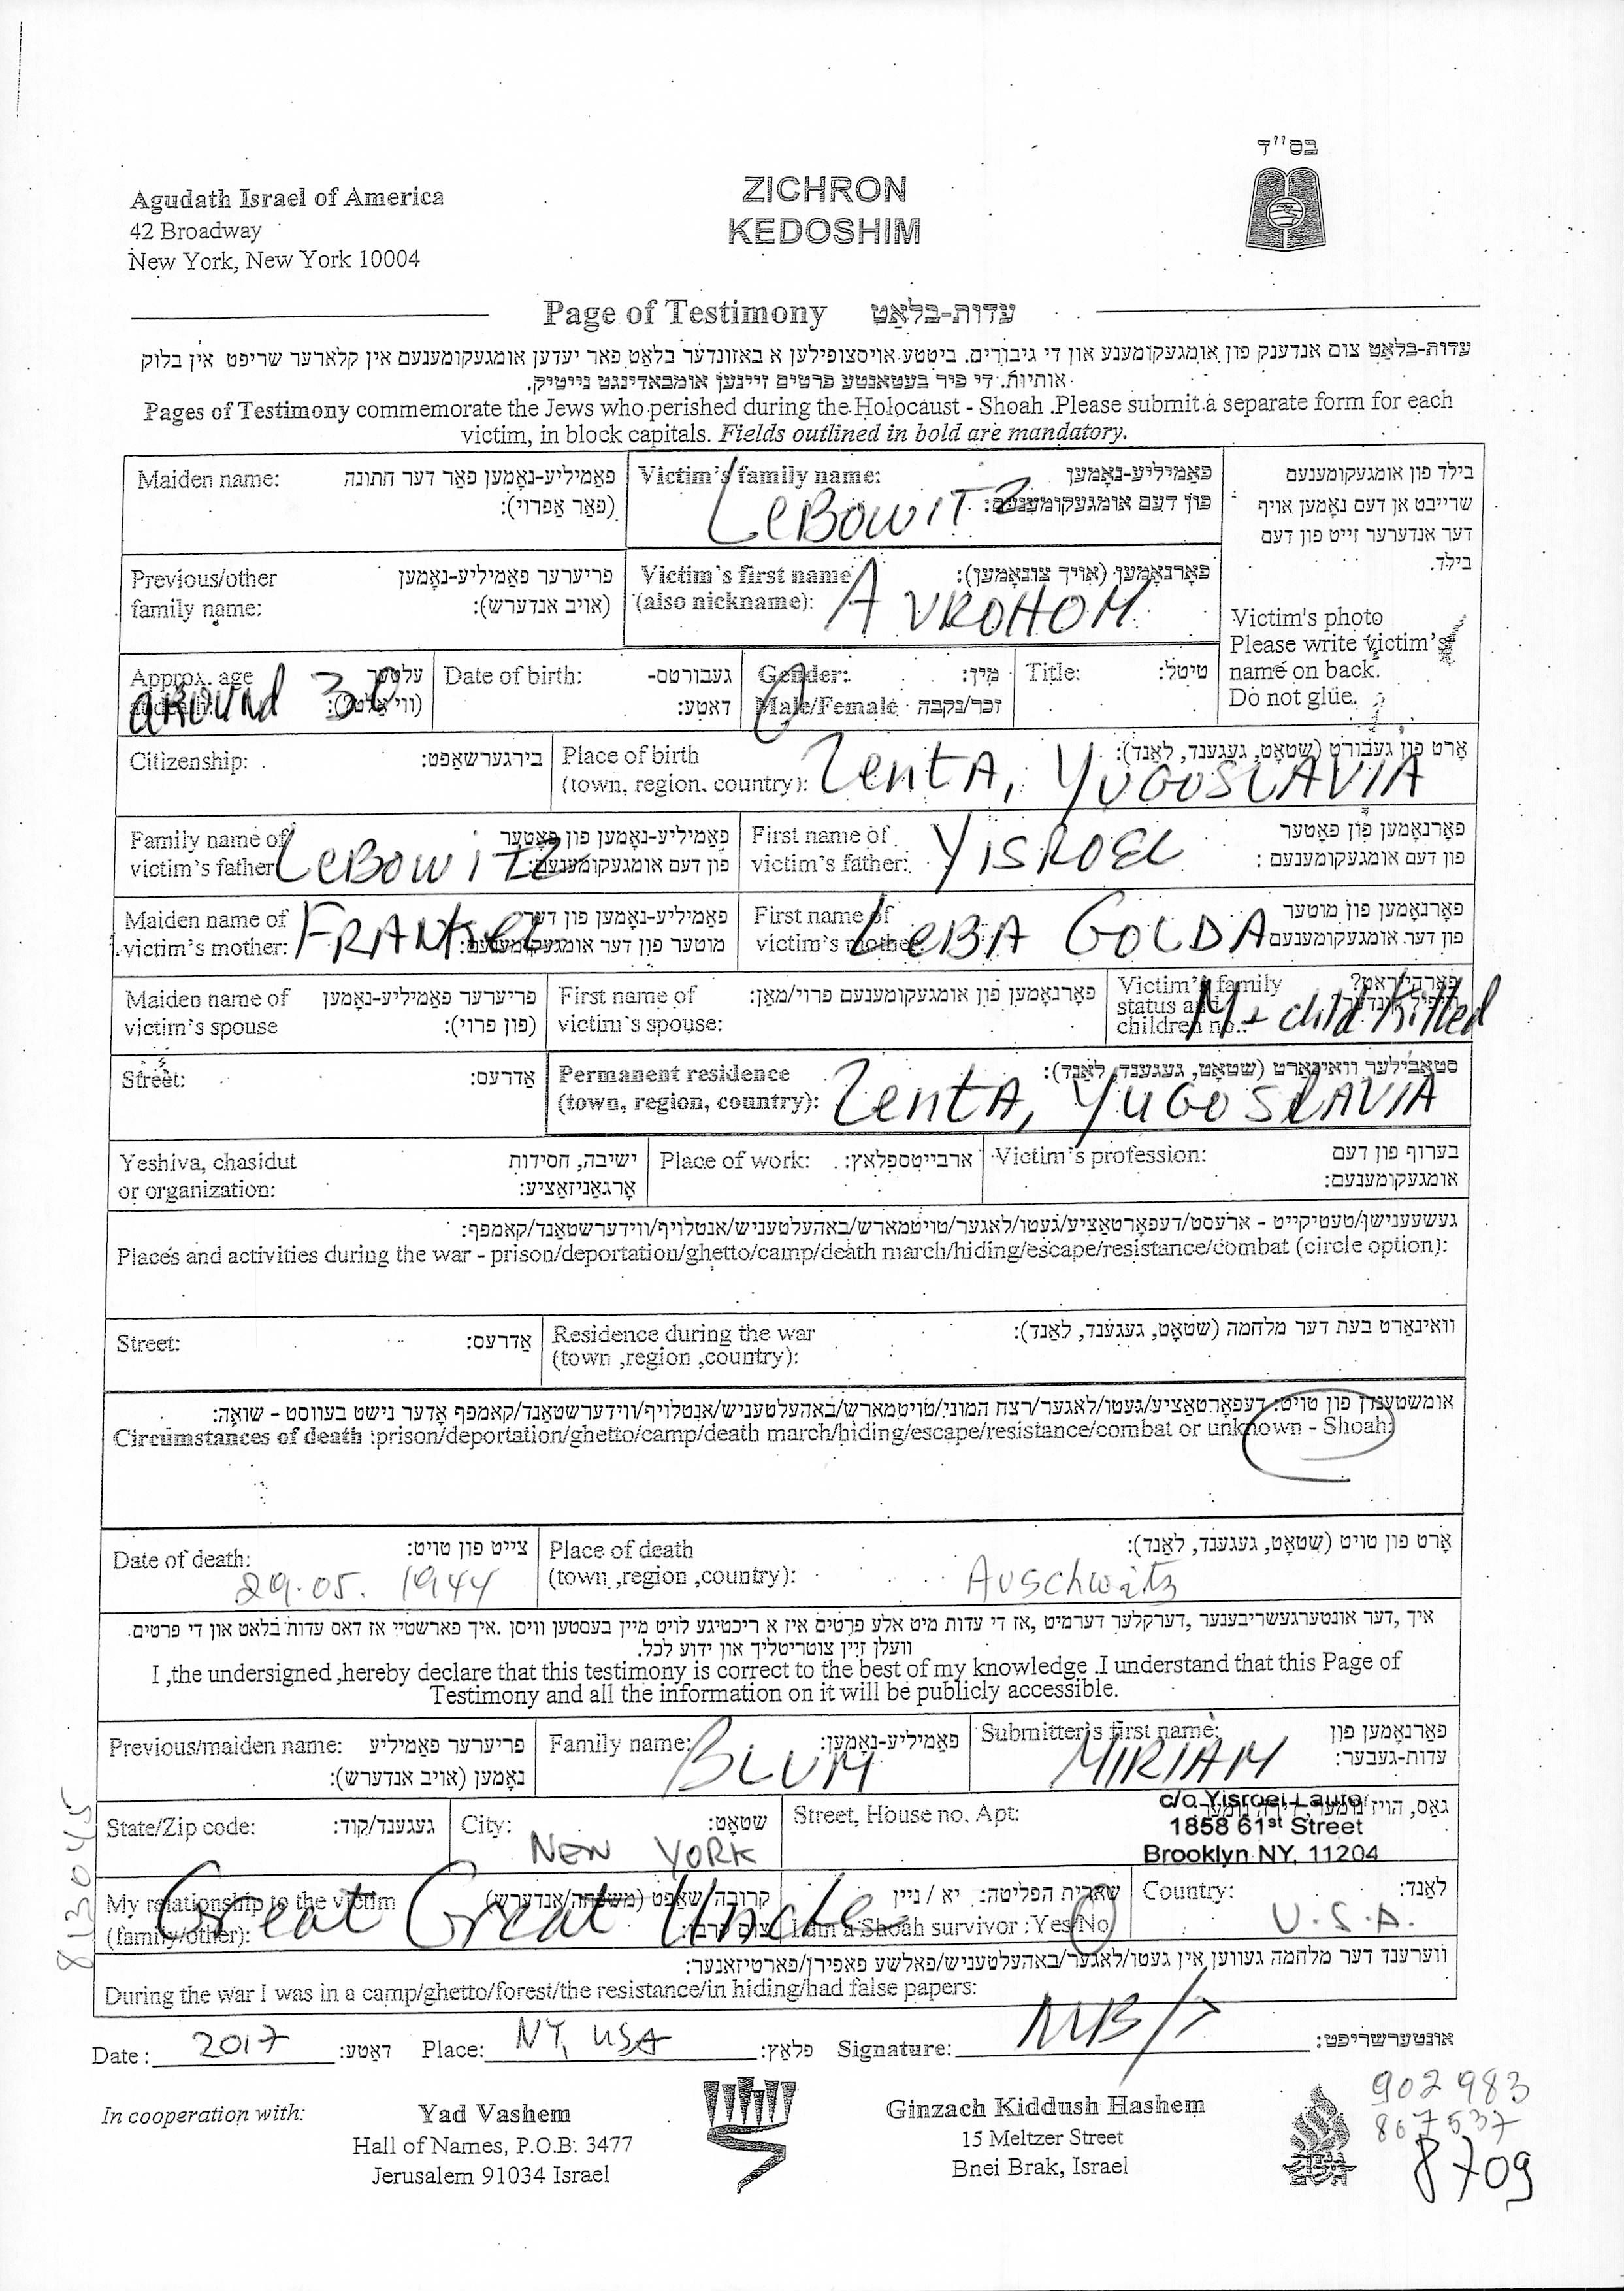 בס"ד
Agudath Israel of America
42 Broadway
New York, New York 10004
ZICHRON
KEDOSHIM
Page of Testimony עדות-בלאַט
עדות-בלאַט צום אנדענק פון אומגעקומענע און די גיבורים. ביטטע אויסצופילען א באזונדער בלאַט פאר יעדען אומגעקומענעם אין קלארער שריפט אין בלוק
אותיות. די פיר בעטאנטע פרטים זיינען אומבאדינגט נייטיק.
Pages of Testimony commemorate the Jews who perished during the Holocaust - Shoah .Please submit a separate form for each
victim, in block capitals. Fields outlined in bold are mandatory.
Maiden name: פאַמיליע-נאָמען פאַר דער חתונה
(פאַר אַפרוי):
Victim's family name: פאַמיליע-נאָמען
פון דעם אומגעקומענעם:
LeBOWITZ
בילד פון אומגעקומענעם
שרייבט אן דעם נאָמען אויף
דער אנדערער זייט פון דעם
בילד.
Victim's photo
Please write victim's
name on back.
Do not glue.
Previous/other פריערער פאַמיליע-נאָמען
family name: (אויב אנדערש):
Victim's first name פאָרנאָמען (אויך צונאָמען):
(also nickname):
AVROHOM
Approx. age עלטער
around 30
Date of birth: געבורטס-
דאטע:
Gender: מין:
Male/Female זכר/נקבה
Title: טיטל:
Citizenship: בירגערשאַפט:
Place of birth אָרט פון געבורט (שטאָט, געגענד, לאַנד):
(town, region. country):
ZentA, YUGOSLAVIA
Family name of פאַמיליע-נאָמען פון פאָטער
victim's father פון דעם אומגעקומענעם:
LeBOWITZ
First name of פאָרנאָמען פון פאָטער
victim's father: פון דעם אומגעקומענעם :
YISROEL
Maiden name of פאַמיליע-נאָמען פון דער
victim's mother: מוטער פון דער אומגעקומענעם:
FRANKel
First name of פאָרנאָמען פון מוטער
victim's mother פון דער אומגעקומענעם
LeBA GOLDA
Maiden name of פריערער פאַמיליע-נאָמען
victim's spouse (פון פרוי):
First name of פאָרנאָמען פון אומגעקומענעם פרוי/מאַן:
victim's spouse:
Victim's family
status and
children no.:
M + child killed
Street: אַדרעס:
Permanent residence סטאַבילער וואוינאָרט (שטאָט, געגענד, לאַנד):
(town, region, country):
ZentA, YUGOSLAVIA
Yeshiva, chasidut ישיבה, חסידות
or organization: אָרגאַניזאַציע:
Place of work: ארבייטספלאַץ:
Victim's profession: בערוף פון דעם
אומגעקומענעם:
געשעענישן/טעטיקייט - ארעסט/דעפּאָרטאַציע/געטו/לאַגער/טויטמארש/באַהעלטעניש/אנטלויף/ווידערשטאַנד/קאמפף:
Places and activities during the war - prison/deportation/ghetto/camp/death march/hiding/escape/resistance/combat (circle option):
Street: אַדרעס:
Residence during the war וואוינאַרט בעת דער מלחמה (שטאָט, געגענד, לאַנד):
(town ,region ,country):
אומשטענדן פון טויט: דעפּאָרטאַציע/געטו/לאַגער/רצח המוני/טויטמארש/באַהעלטעניש/אַנטלויף/ווידערשטאַנד/קאמפף אָדער נישט בעוואוסט - שואה:
Circumstances of death :prison/deportation/ghetto/camp/death march/hiding/escape/resistance/combat or unknown - Shoah:
Date of death: צייט פון טויט:
29.05. 1944
Place of death אָרט פון טויט (שטאָט, געגענד, לאַנד):
(town ,region ,country):
Auschwitz
איך ,דער אונטערגעשריבענער ,דערקלער דערמיט ,אז די עדות מיט אלע פרטים איז א ריכטיגע לויט מיין בעסטען וויסן .איך פארשטיי אז דאס עדות בלאט און די פרטים
וועלן זיין צוטריטליך און ידוע לכל.
I ,the undersigned ,hereby declare that this testimony is correct to the best of my knowledge .I understand that this Page of
Testimony and all the information on it will be publicly accessible.
Previous/maiden name: פריערער פאַמיליע
נאָמען (אויב אנדערש):
Family name: פאַמיליע-נאָמען:
BLUM
Submitter's first name: פאָרנאָמען פון
עדות-געבער:
MIRIAM
State/Zip code: געגענד/קוד:
City: שטאָט:
NEW YORK
Street, House no. Apt:
c/o Yisroel Lauro
1858 61st Street
Brooklyn NY, 11204
My relationship to the victim
(family/other):
Great Great Uncle
שארית הפליטה: יא / ניין
I am a Shoah survivor : Yes/No
Country: לאַנד:
U.S.A.
ווערענד דער מלחמה געווען אין געטו/לאַגער/באַהעלטעניש/פאלשע פאפירן/פארטיזאנער:
During the war I was in a camp/ghetto/forest/the resistance/in hiding/had false papers:
Date : 2017 דאַטע: Place: NY, USA פלאַץ: Signature: MB אונטערשריפט:
813045
In cooperation with:
Yad Vashem
Hall of Names, P.O.B: 3477
Jerusalem 91034 Israel
Ginzach Kiddush Hashem
15 Meltzer Street
Bnei Brak, Israel
902983
867537
8709